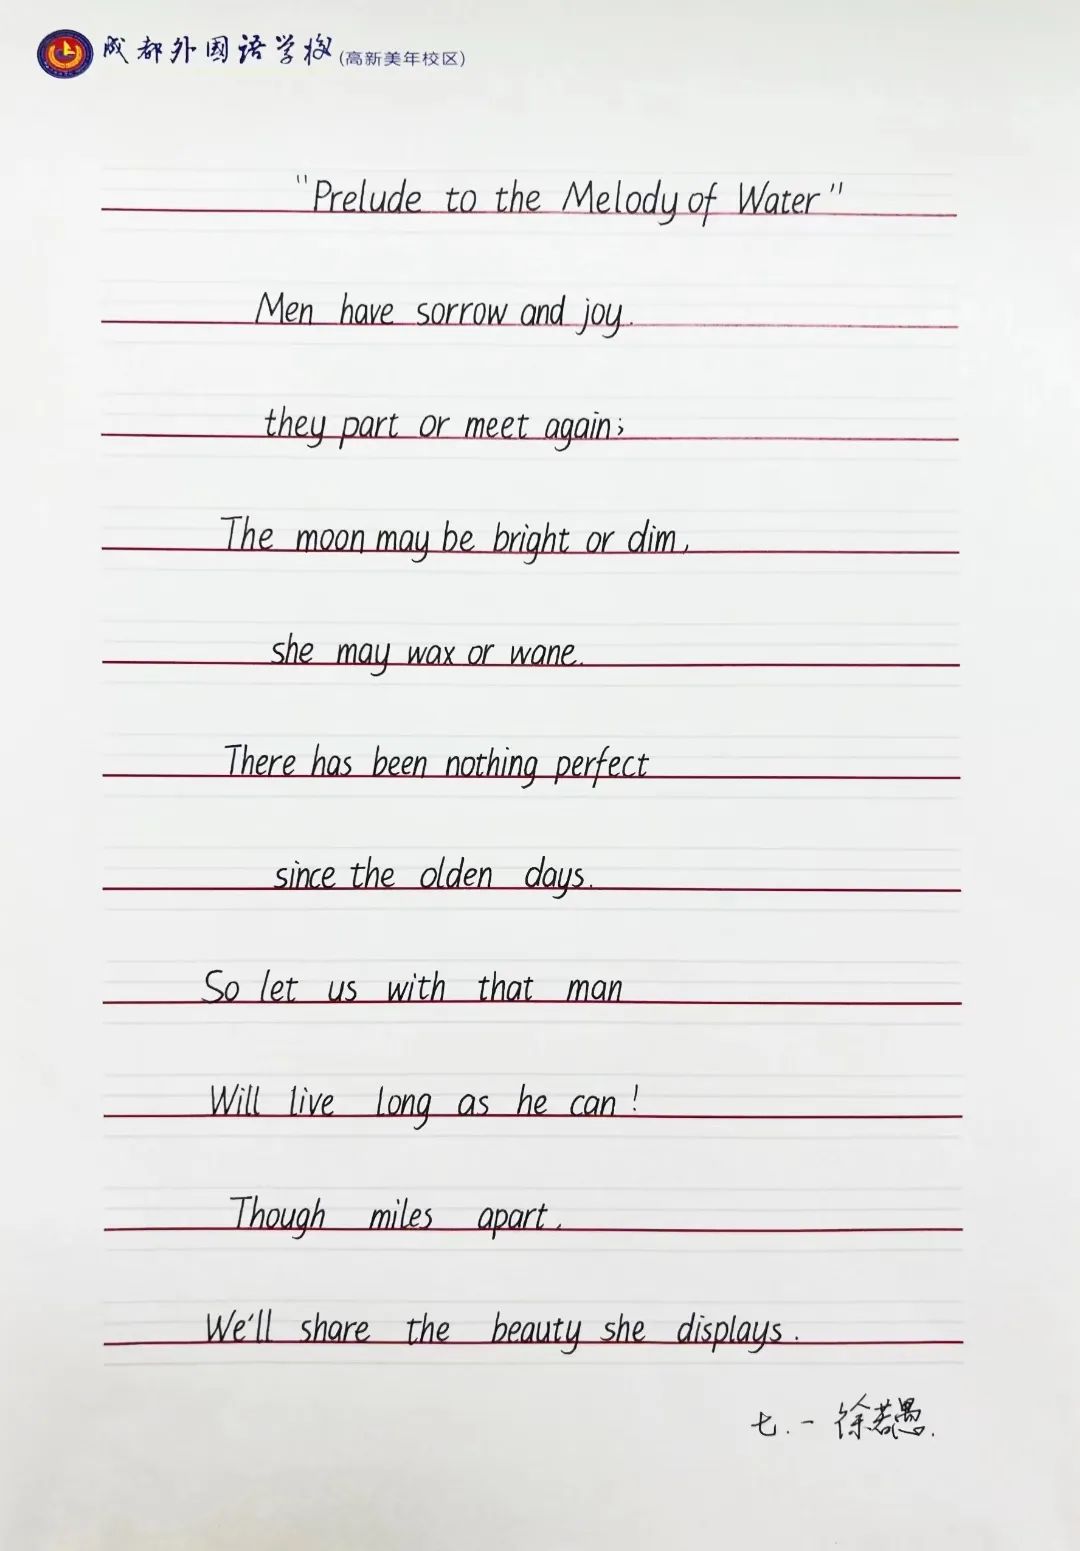 成都外国语学校(高新美年校区)
"Prelude to the Melody of Water"
Men have sorrow and joy.
they part or meet again;
The moon may be bright or dim,
she may wax or wane.
There has been nothing perfect
since the olden days.
So let us with that man
Will live long as he can!
Though miles apart,
We'll share the beauty she displays.
七.一 徐若愚.